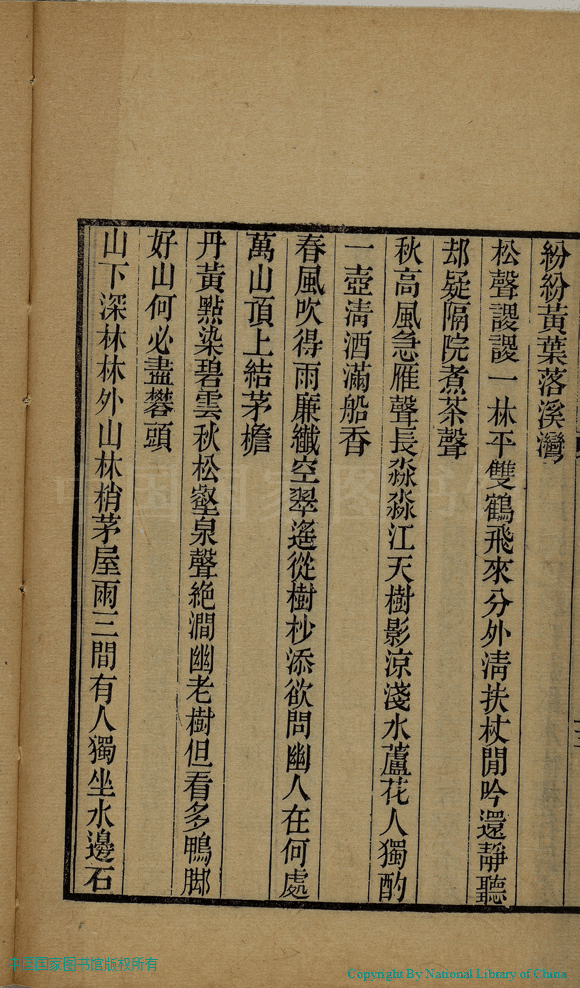 紛紛黃葉落溪灣
松聲謖謖一林平雙鶴飛來分外淸扶杖閒吟還靜聽
却疑隔院煮茶聲
秋高風急雁聲長淼淼江天樹影涼淺水蘆花人獨酌
一壺淸酒滿船香
春風吹得雨廉纖空翠遙從樹杪添欲問幽人在何處
萬山頂上結茅檐
丹黃點染碧雲秋松壑泉聲絶澗幽老樹但看多鴨脚
好山何必盡礬頭
山下深林林外山林梢茅屋兩三間有人獨坐水邊石
中国国家图书馆版权所有
Copyright By National Library of China